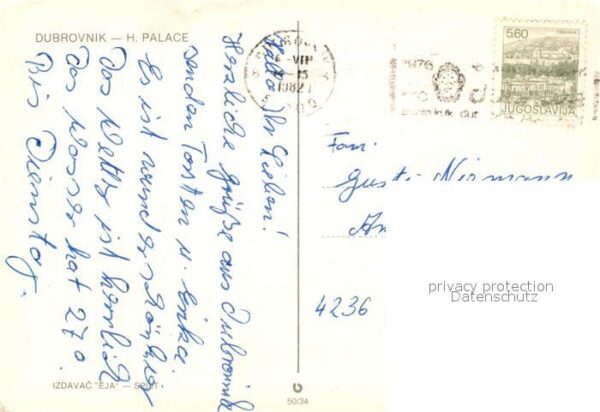 DUBROVNIK — H. PALACE
Hallo Ihr Lieben!
Herzliche Grüße aus Dubrovnik
senden Torsten u. Erika.
Es ist wunderschön hier
Das Wetter ist herrlich
das Wasser hat 27°.
Bis Dienstag.
IZDAVAČ "EJA" — SPLIT
50/34
1982
5.60
JUGOSLAVIJA
Fam.
Gusti Niemann
4236
privacy protection
Datenschutz